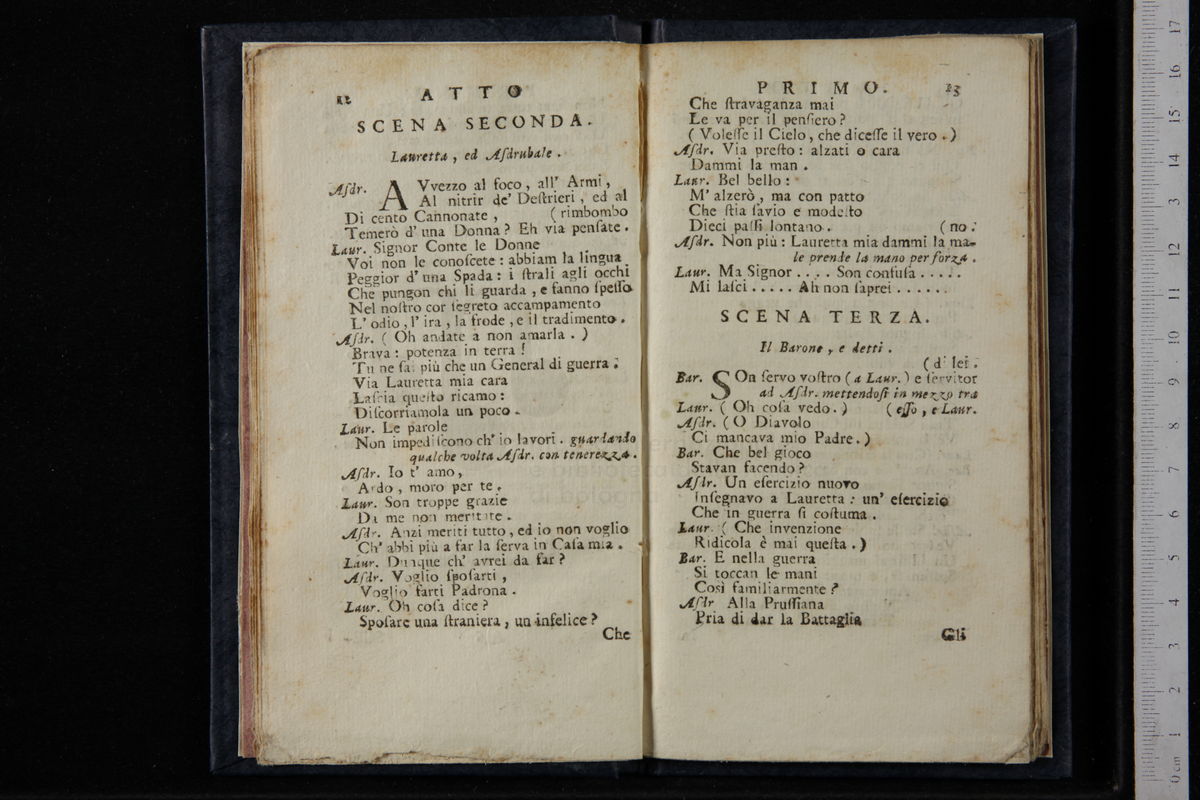 12 ATTO
SCENA SECONDA.
Lauretta, ed Aſdrubale.
Aſdr. AVvezzo al foco, all' Armi,
Al nitrir de' Deſtrieri, ed al
Di cento Cannonate, (rimbombo
Temerò d' una Donna? Eh via penſate.
Laur. Signor Conte le Donne
Voi non le conoſcete: abbiam la lingua
Peggior d' una Spada: i ſtrali agli occhi
Che pungon chi li guarda, e fanno ſpeſſo
Nel noſtro cor ſegreto accampamento
L' odio, l' ira, la frode, e il tradimento.
Aſdr. (Oh andate a non amarla.)
Brava: potenza in terra!
Tu ne ſai più che un General di guerra:
Via Lauretta mia cara
Laſcia queſto ricamo:
Diſcorriamola un poco.
Laur. Le parole
Non impediſcono ch' io lavori. guardando
qualche volta Aſdr. con tenerezza.
Aſdr. Io t' amo,
Ardo, moro per te.
Laur. Son troppe grazie
Da me non meritate.
Aſdr. Anzi meriti tutto, ed io non voglio
Ch' abbi più a far la ſerva in Caſa mia.
Laur. Dunque ch' avrei da far?
Aſdr. Voglio ſpoſarti,
Voglio farti Padrona.
Laur. Oh coſa dice?
Spoſare una ſtraniera, un infelice?
Che
PRIMO. 13
Che ſtravaganza mai
Le va per il penſiero?
(Voleſſe il Cielo, che diceſſe il vero.)
Aſdr. Via preſto: alzati o cara
Dammi la man.
Laur. Bel bello:
M' alzerò, ma con patto
Che ſtia ſavio e modeſto
Dieci paſſi lontano. (no:
Aſdr. Non più: Lauretta mia dammi la ma-
le prende la mano per forza.
Laur. Ma Signor.... Son confuſa.....
Mi laſci..... Ah non ſaprei......
SCENA TERZA.
Il Barone, e detti.
(di lei.
Bar. SOn ſervo voſtro (a Laur.) e ſervitor
ad Aſdr. mettendoſi in mezzo tra
Laur. (Oh coſa vedo.) (eſſo, e Laur.
Aſdr. (O Diavolo
Ci mancava mio Padre.)
Bar. Che bel gioco
Stavan facendo?
Aſdr. Un eſercizio nuovo
Inſegnavo a Lauretta: un' eſercizio
Che in guerra ſi coſtuma.
Laur. (Che invenzione
Ridicola è mai queſta.)
Bar. E nella guerra
Si toccan le mani
Così familiarmente?
Aſdr Alla Pruſſiana
Pria di dar la Battaglia
Gli
0 cm 1 2 3 4 5 6 7 8 9 10 11 12 13 14 15 16 17